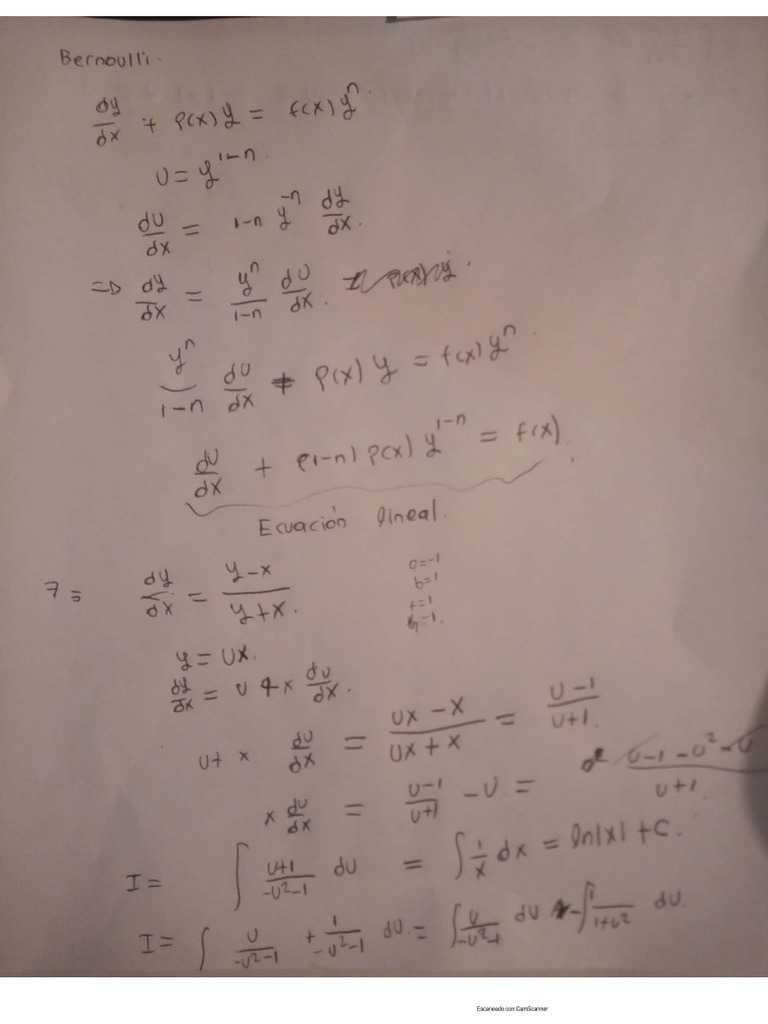 Bernoulli.
dy/dx + P(x) y = f(x) y^n.
U = y^(1-n).
dU/dx = 1-n y^(-n) dy/dx.
=> dy/dx = y^n/(1-n) dU/dx.
y^n/(1-n) dU/dx + P(x) y = f(x) y^n.
dU/dx + (1-n) P(x) y^(1-n) = f(x).
Ecuación lineal.
7= dy/dx = (y-x)/(y+x).
a=-1
b=1
y = Ux.
dy/dx = U + x dU/dx.
U+ x dU/dx = (Ux-x)/(Ux+x) = (U-1)/(U+1).
x dU/dx = (U-1)/(U+1) - U = (U-1-U^2-U)/(U+1).
I = ∫ (U+1)/(-U^2-1) dU = ∫ 1/x dx = ln|x| + C.
I = ∫ U/(-U^2-1) + 1/(-U^2-1) dU. = ∫ U/(-U^2-1) dU - ∫ 1/(1+U^2) dU.
Escaneado con CamScanner